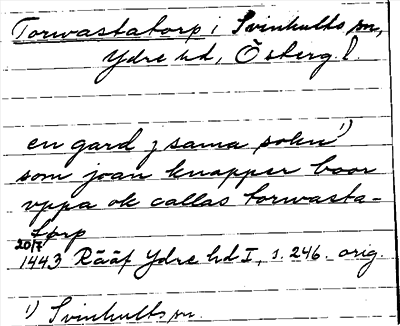 Torwastatorp i Svinhults sn,
Ydre hd, Österg. l.
en gard j sama sokn¹)
som joan knapper boor
vppa ok callas torwasta-
torp
20/7
1443 Rääf Ydre hd I, s. 246. orig.
¹) Svinhults sn.